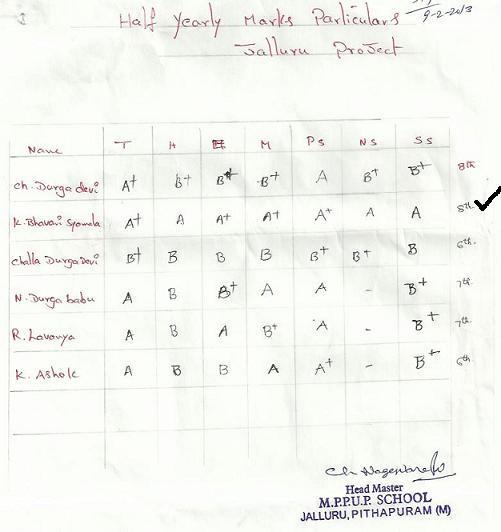 9-2-2013
Half Yearly Marks Particulars
Jalluru Project
Name T H E M PS NS SS
Ch. Durga devi A+ B+ B+ B+ A B+ B+ 8th
K. Bhavani Syamala A+ A A+ A+ A+ A A 8th
Challa Durga Devi B+ B B B B+ B+ B 6th
N. Durga babu A B B+ A A - B+ 7th
R. Lavanya A B A B+ A - B+ 7th
K. Ashok A B B A A+ - B+ 6th
Ch Nageswara Rao
Head Master
M.P.P.U.P. SCHOOL
JALLURU, PITHAPURAM (M)